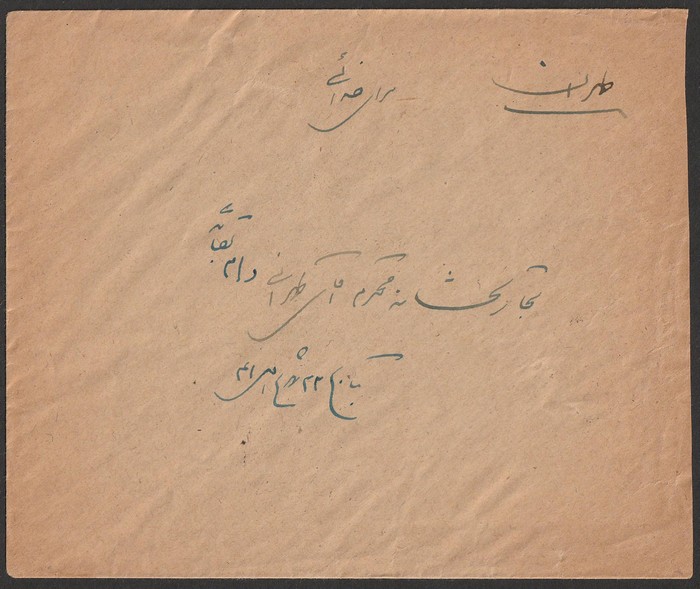 طهران
سرای حدائی
تجارتخانه محترم آقای طهرانی دام بقائه
بتاریخ ۲۳